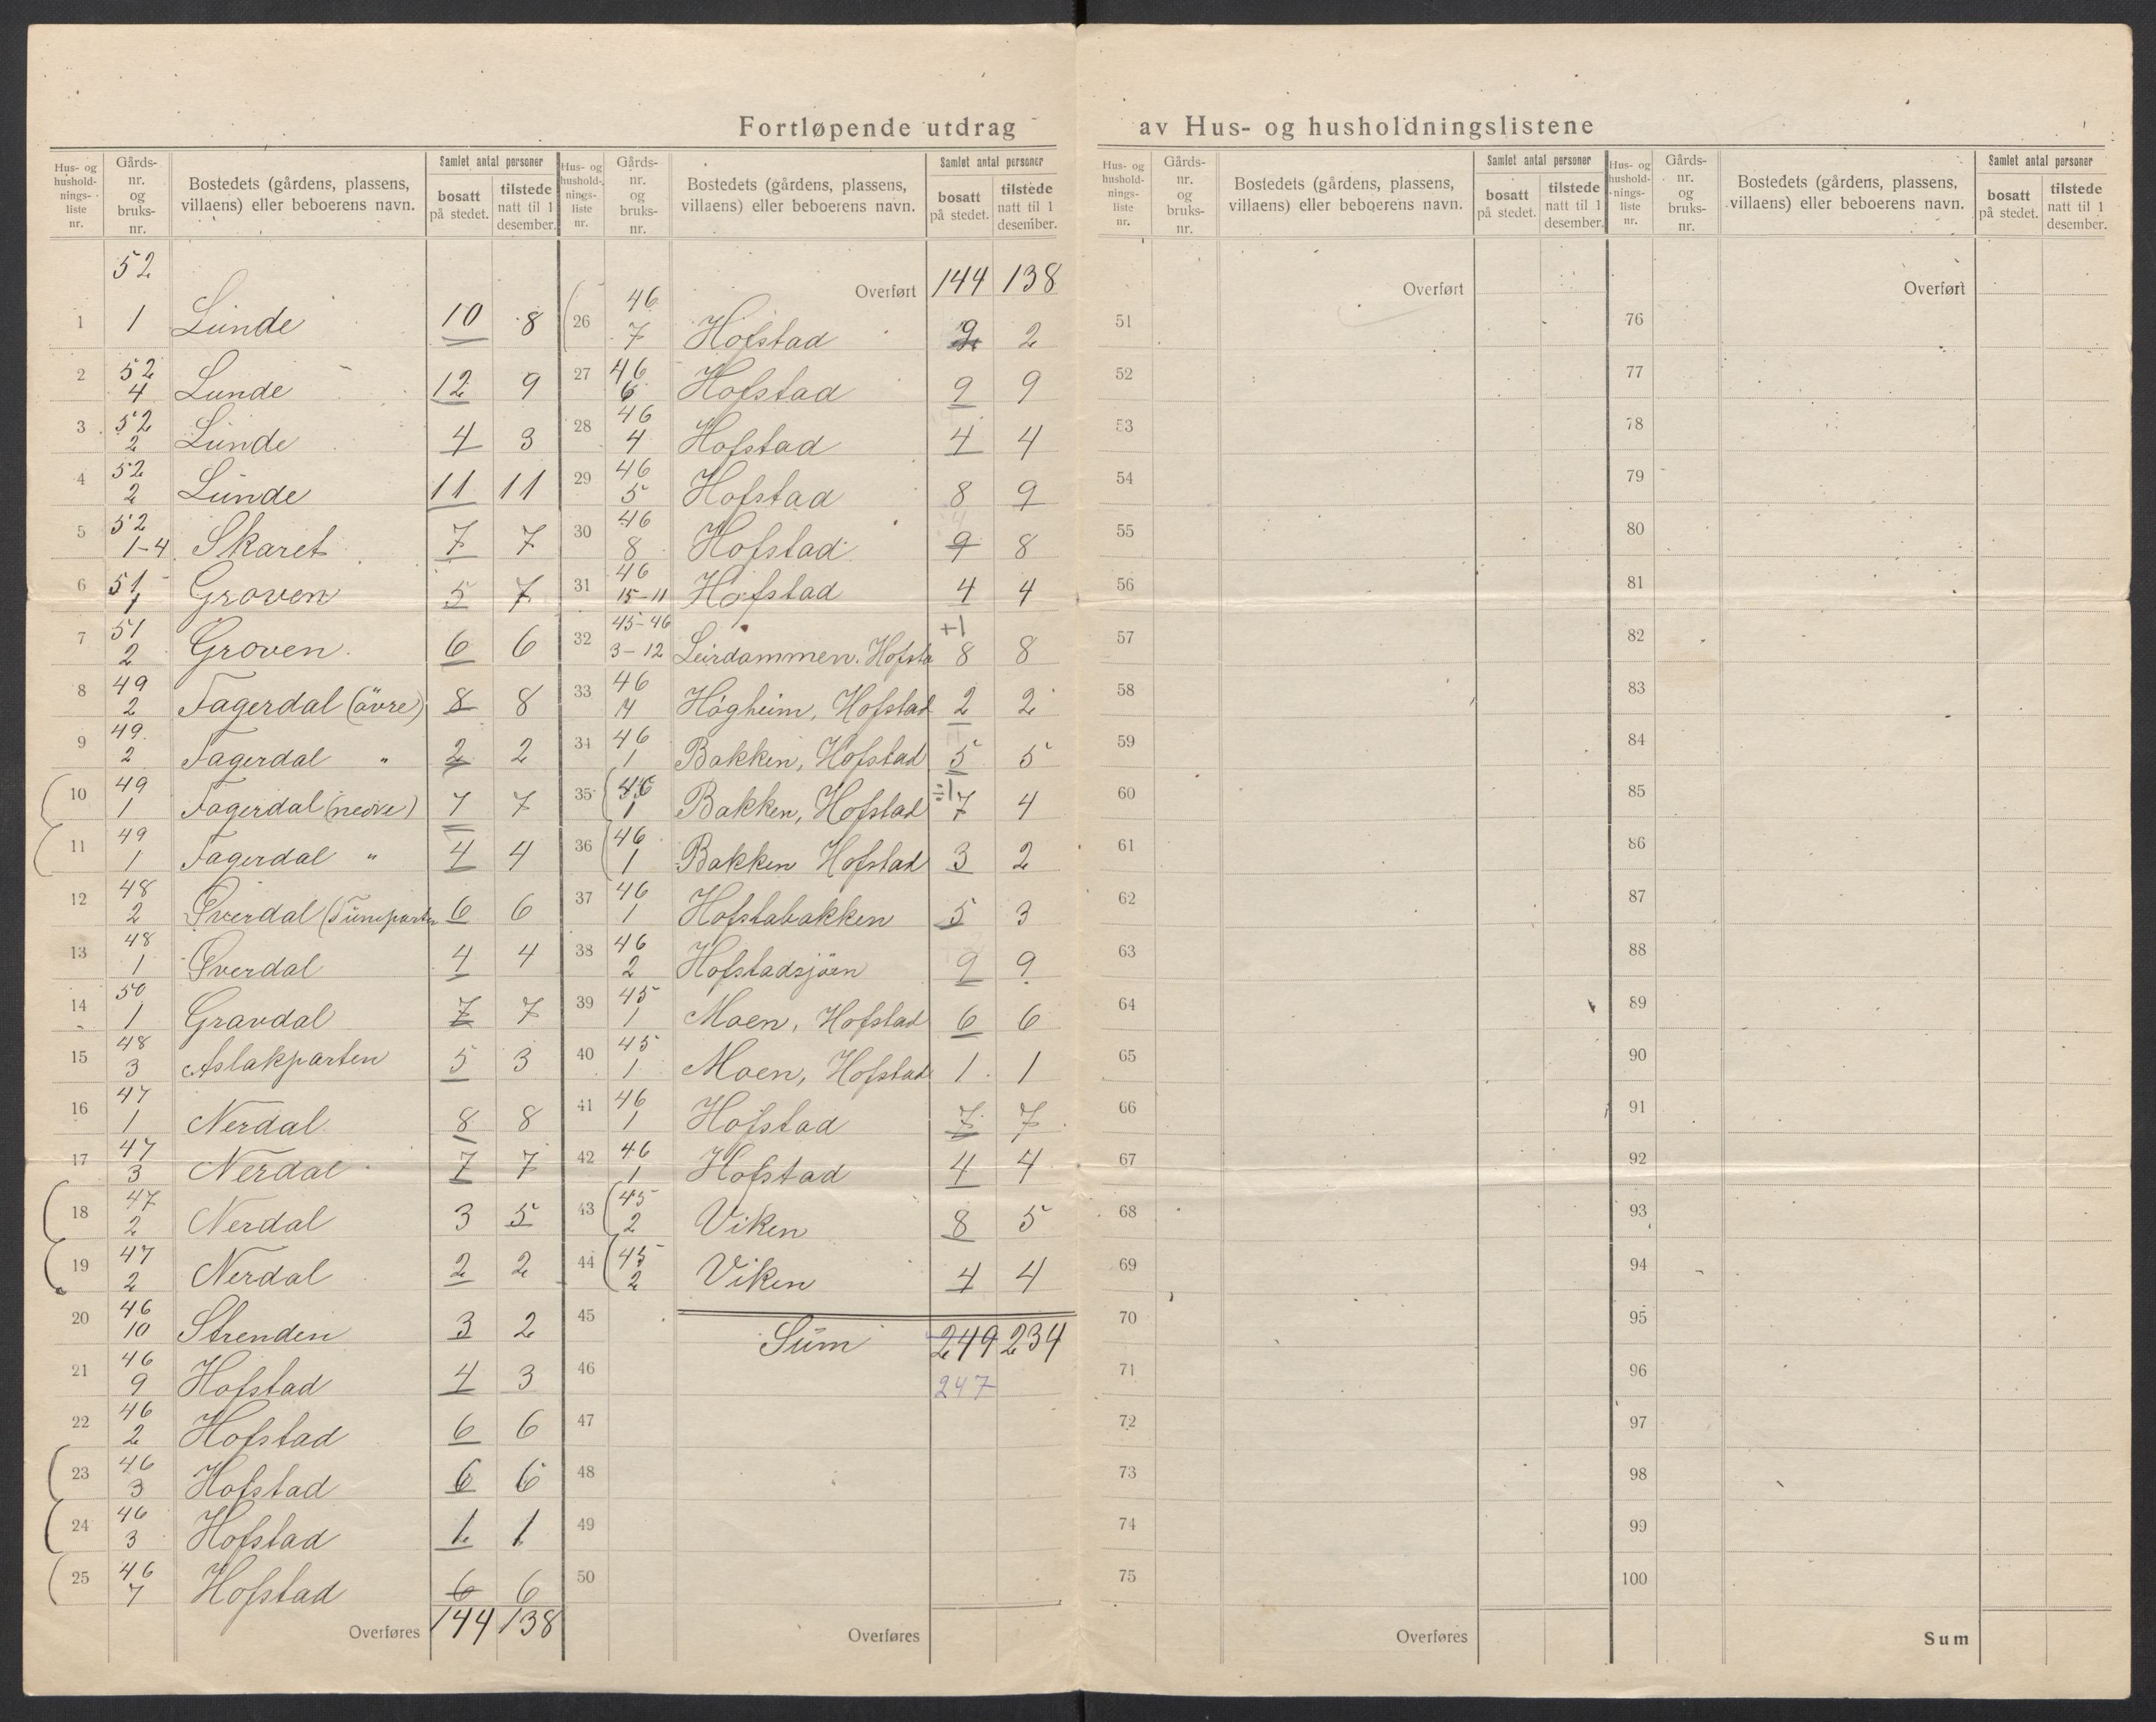 Fortløpende utdrag av Hus- og husholdningslistene
Hus- og hushold-nings-liste nr. Gårds-nr. og bruks-nr. Bostedets (gårdens, plassens, villaens) eller beboerens navn. Samlet antal personer bosatt på stedet. tilstede natt til 1 desember.
1 52 1 Lunde 10 8
2 52 4 Lunde 12 9
3 52 2 Lunde 4 3
4 52 2 Lunde 11 11
5 52 1-4 Skaret 7 7
6 51 1 Groven 5 7
7 51 2 Groven 6 6
8 49 2 Fagerdal (övre) 8 8
9 49 2 Fagerdal " 2 2
10 49 1 Fagerdal (nedre) 7 7
11 49 1 Fagerdal " 4 4
12 48 2 Överdal 6 6
13 48 1 Överdal 4 4
14 50 1 Gravdal 7 7
15 48 3 Aslakparten 5 3
16 47 1 Nerdal 8 8
17 47 3 Nerdal 7 7
18 47 2 Nerdal 3 5
19 47 2 Nerdal 2 2
20 46 10 Strenden 3 2
21 46 9 Hofstad 4 3
22 46 2 Hofstad 6 6
23 46 3 Hofstad 6 6
24 46 3 Hofstad 1 1
25 46 7 Hofstad 6 6
Overføres 144 138
Hus- og hushold-nings-liste nr. Gårds-nr. og bruks-nr. Bostedets (gårdens, plassens, villaens) eller beboerens navn. Samlet antal personer bosatt på stedet. tilstede natt til 1 desember.
Overført 144 138
26 46 7 Hofstad 2 2
27 46 6 Hofstad 9 9
28 46 4 Hofstad 4 4
29 46 5 Hofstad 8 9
30 46 8 Hofstad 9 8
31 46 15-11 Hofstad 4 4
32 45-46 3-12 Leirdammen. Hofsta +1 8 8
33 46 4 Högheim, Hofstad 2 2
34 46 1 Bakken, Hofstad 5 5
35 46 1 Bakken, Hofstad ÷1 7 4
36 46 1 Bakken Hofstad 3 2
37 46 1 Hofstabakken 5 3
38 46 2 Hofstadsjöen 9 9
39 45 1 Moen, Hofstad 6 6
40 45 1 Moen, Hofstad 1 1
41 46 1 Hofstad 7 7
42 46 1 Hofstad 4 4
43 45 2 Viken 8 5
44 45 2 Viken 4 4
45 Sum 249 234
46 247
47
48
49
50
Overføres
Hus- og hushold-nings-liste nr. Gårds-nr. og bruks-nr. Bostedets (gårdens, plassens, villaens) eller beboerens navn. Samlet antal personer bosatt på stedet. tilstede natt til 1 desember.
Overført
51
52
53
54
55
56
57
58
59
60
61
62
63
64
65
66
67
68
69
70
71
72
73
74
75
Overføres
Hus- og hushold-nings-liste nr. Gårds-nr. og bruks-nr. Bostedets (gårdens, plassens, villaens) eller beboerens navn. Samlet antal personer bosatt på stedet. tilstede natt til 1 desember.
Overført
76
77
78
79
80
81
82
83
84
85
86
87
88
89
90
91
92
93
94
95
96
97
98
99
100
Sum